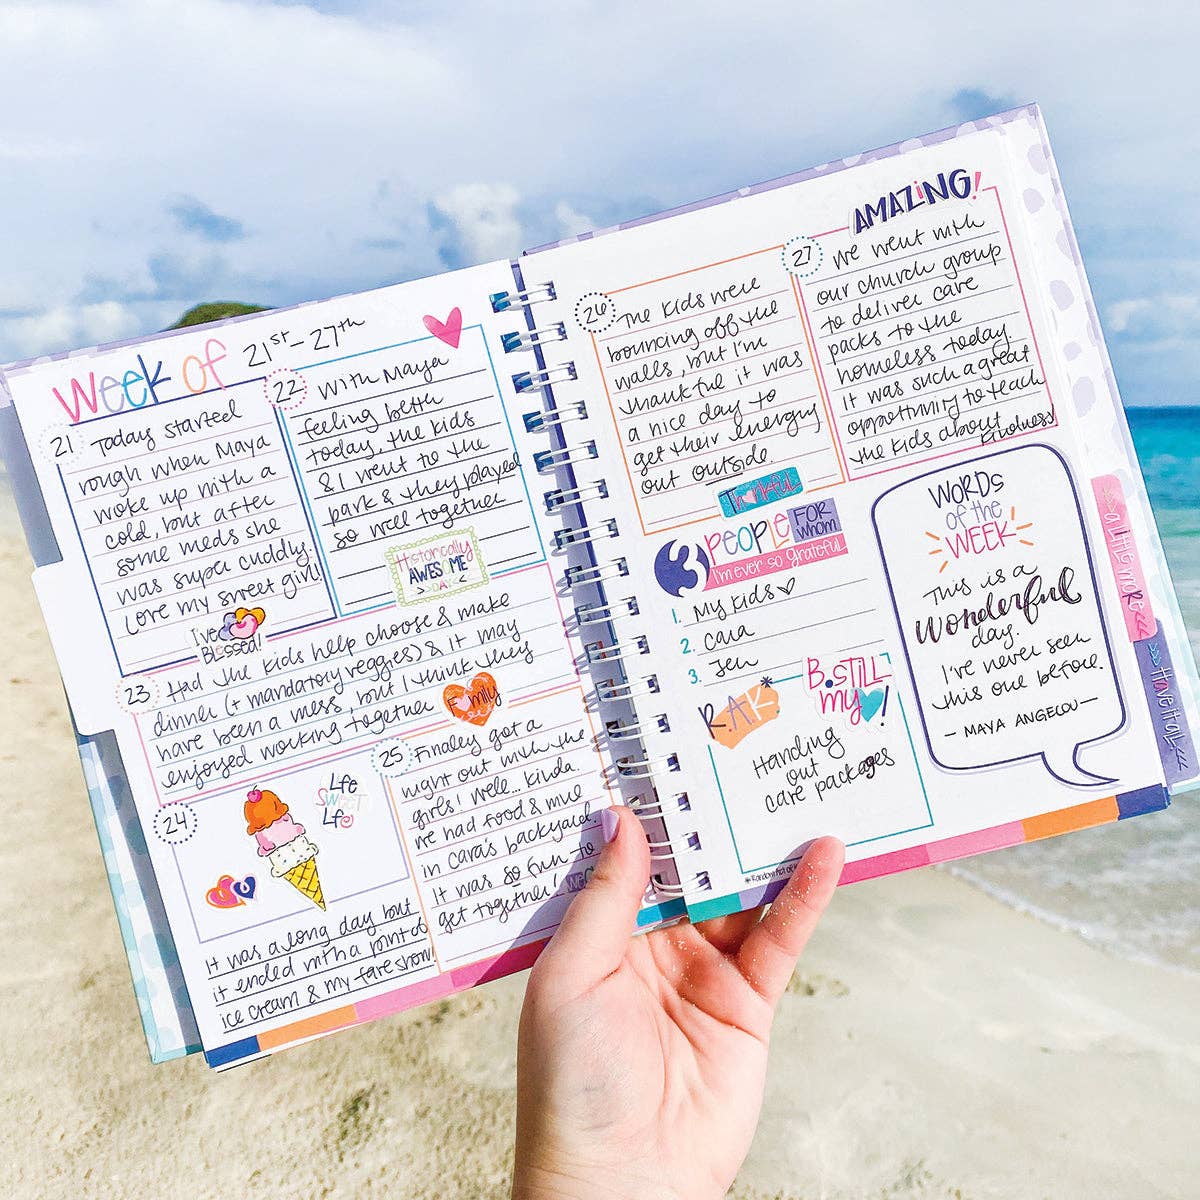 Week of 21st-27th
21
Today started
rough when Maya
woke up with a
cold, but after
some meds she
was super cuddly.
Love my sweet girl!
I've
Blessed!
22
With Maya
feeling better
today, the kids
& I went to the
park & they played
so well together
Historically
AWESOME
DAY
23
Had the kids help choose & make
dinner (+ mandatory veggies) & it may
have been a mess, but I think they
enjoyed working together
Family
24
Life
SWEET
Life
It was a long day but
it ended with a pint of
ice cream & my fave show!
25
Finaley got a
night out with the
girls! Well... kinda.
We had food & wine
in Cara's backyard.
It was so fun to
get together!
26
The kids were
bouncing off the
walls, but I'm
thankful it was
a nice day to
get their energy
out outside.
Thankful
27
AMAZING!
We went with
our church group
to deliver care
packs to the
homeless today.
It was such a great
opportunity to teach
the kids about
kindness
3 people FOR whom
I'm ever so grateful
1. My kids ♡
2. Cara
3. Jen
R.A.K*
B.STILL
my ♥!
Handing
out
care packages
WORDS
of the
WEEK
This is a
wonderful
day.
I've never seen
this one before.
- MAYA ANGELOU -
a little more <<
>>> Have it all <<